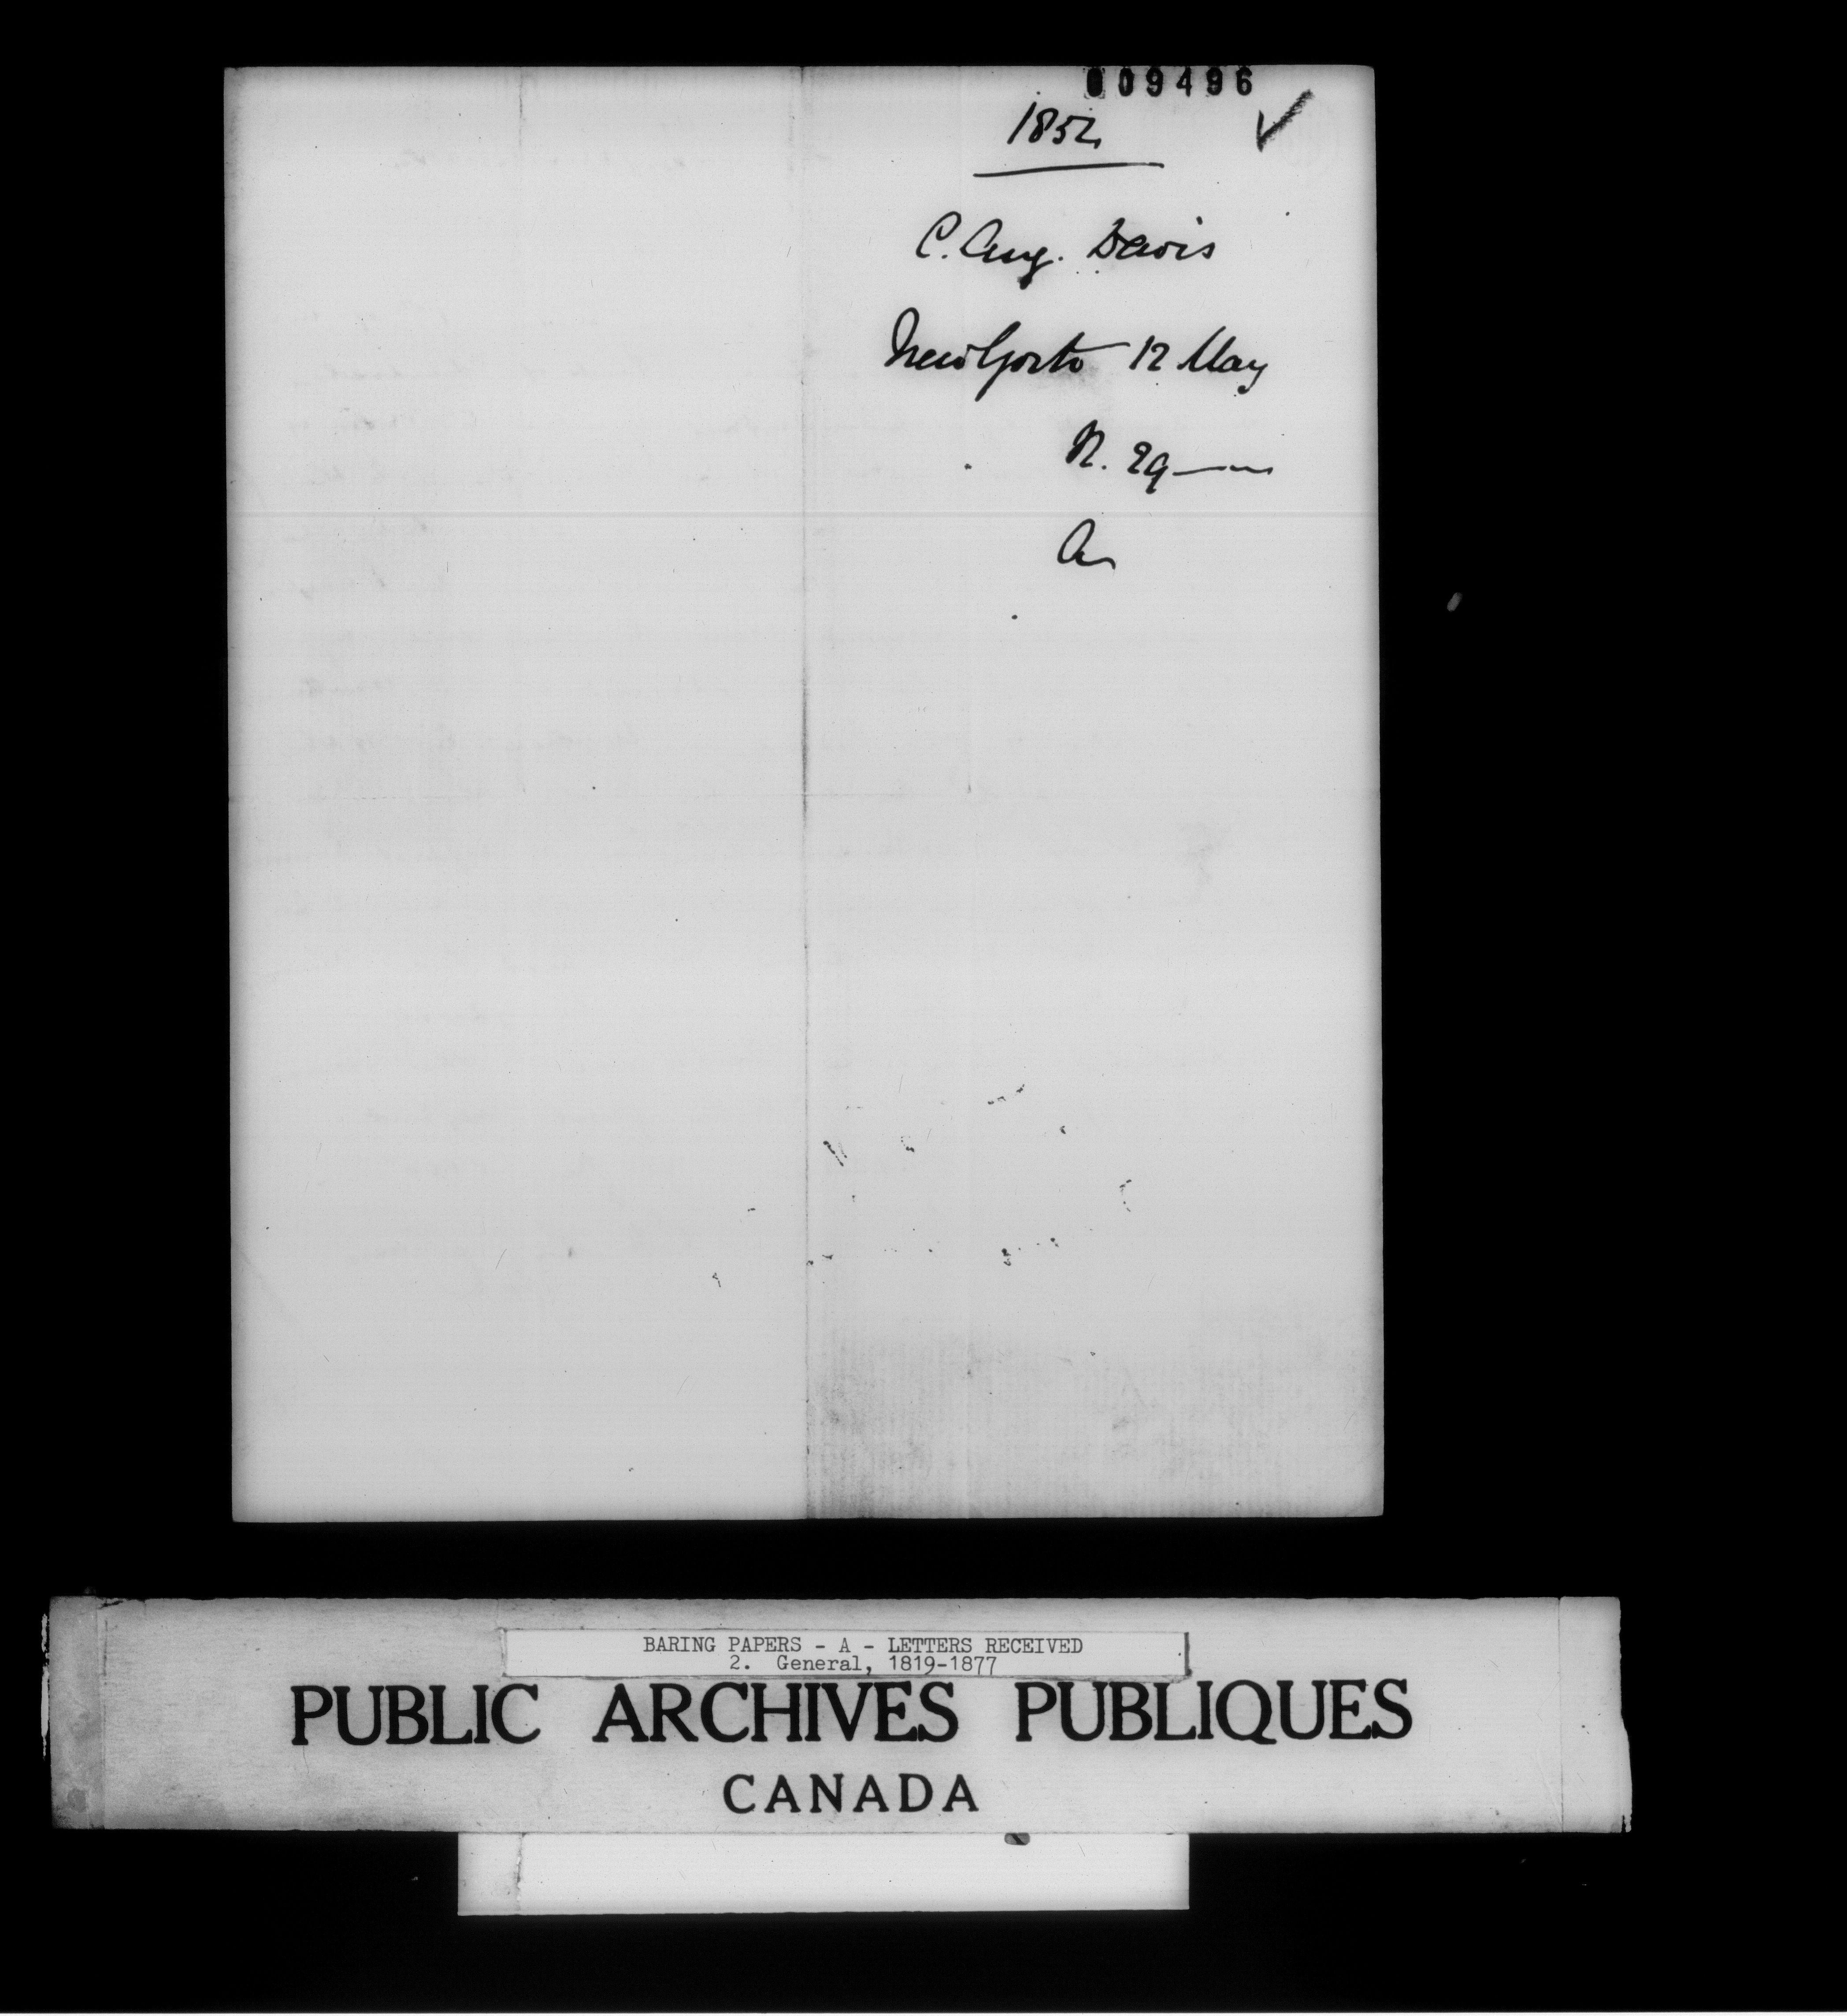 009496
1852
C. Aug. Davis
New York 12 May
R. 29
A
BARING PAPERS - A - LETTERS RECEIVED
2. General, 1819-1877
PUBLIC ARCHIVES PUBLIQUES
CANADA